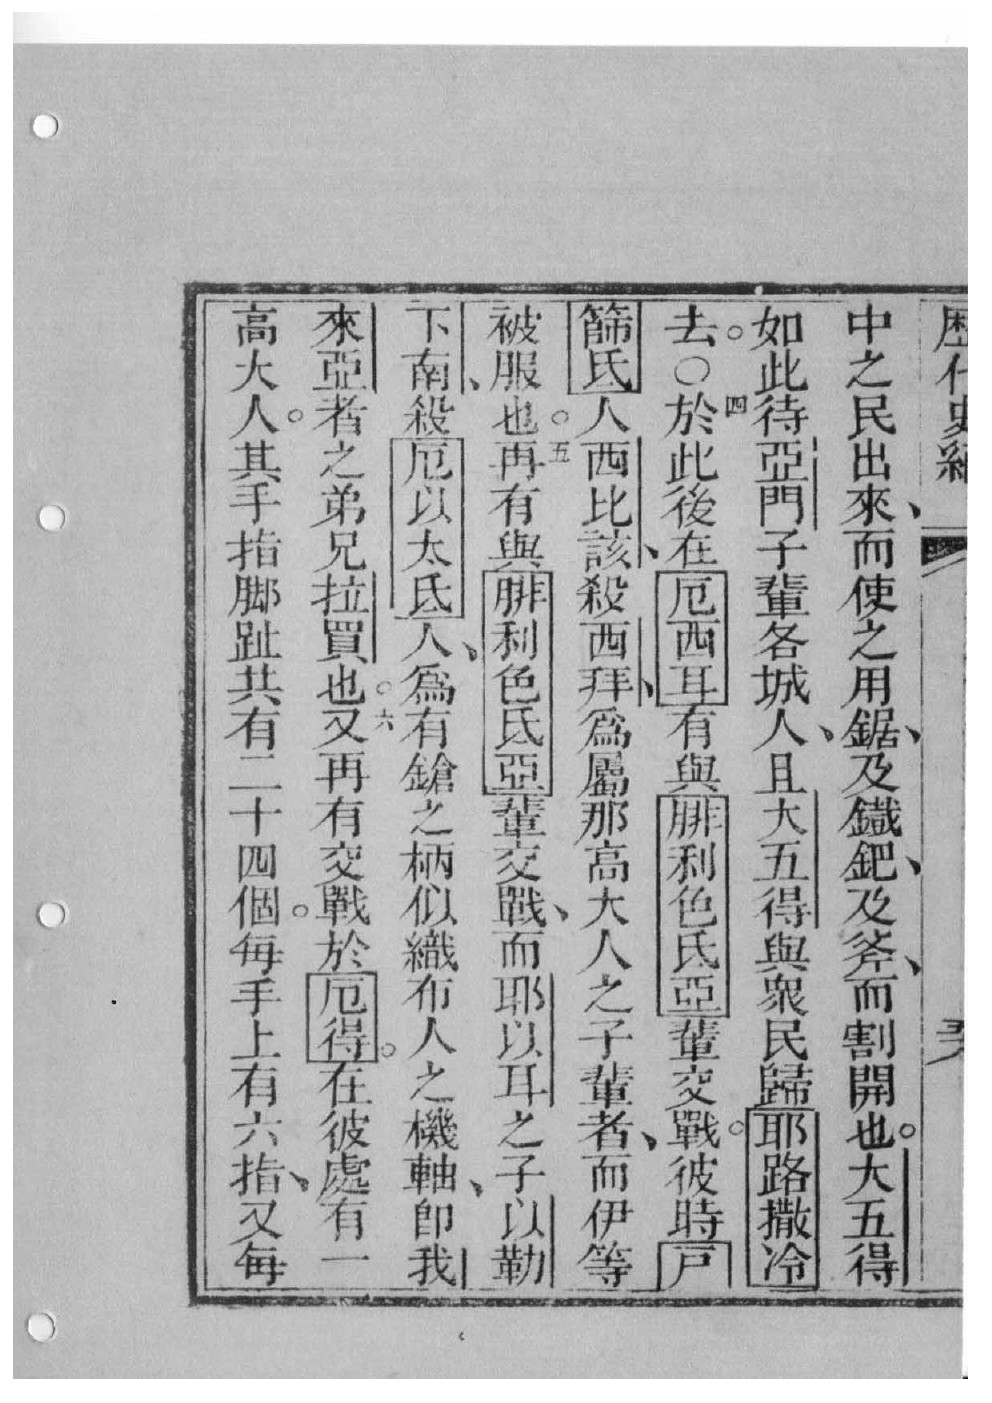 歷代史紀
中之民出來、而使之用鋸、及鐵鈀、及斧、而割開也。大五得
如此待亞門子輩各城人、且大五得與衆民歸耶路撒冷
去。〇四於此後在厄西耳有與腓利色氏亞輩交戰。彼時戸
篩氏人西比該、殺西拜、爲屬那高大人之子輩者、而伊等
被服也。五再有與腓利色氏亞輩交戰、而耶以耳之子以勒
下南、殺厄以太氏人、爲有鎗之柄似織布人之機軸、卽我
來亞者之弟兄拉買也。六又再有交戰於厄得。在彼處有一
高大人。其手指脚趾共有二十四個。每手上有六指、又每